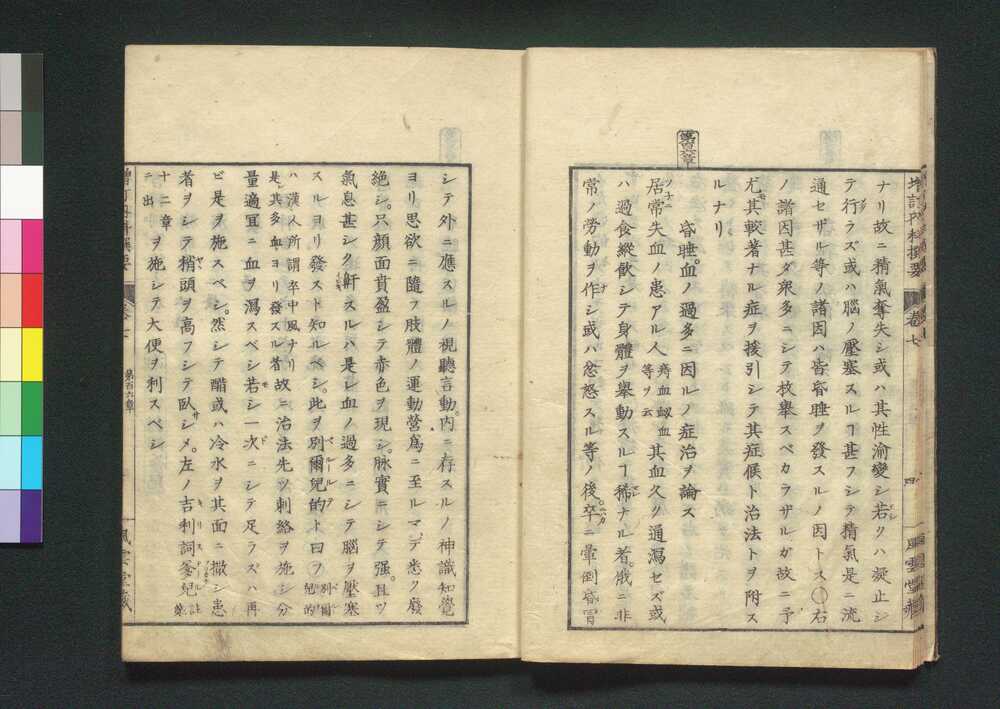 増訂内科撰要
卷七
四
風雲堂藏
ナリ故ニ精氣奪失シ或ハ其性渝變シ若クハ凝止シ
テ行ラズ或ハ腦ノ壓塞スルヿ甚フシテ精氣是ニ流
通セザル等ノ諸因ハ皆昏睡ヲ發スルノ因トス〇右
ノ諸因甚ダ衆多ニシテ枚擧スベカラザルガ故ニ予
尤其較著ナル症ヲ援引シテ其症候ト治法トヲ附ス
ルナリ
昏睡血ノ過多ニ因ルノ症治ヲ論ス
居常失血ノ患アル人痔血衂血等ヲ云其血久ク通瀉セズ或
ハ過食縱飮シテ身體ヲ擧動スルヿ稀ナル者俄ニ非
常ノ勞動ヲ作シ或ハ忿怒スル等ノ後卒ニ暈倒昏冒
シテ外ニ應スルノ視聽言動内ニ存スルノ神識知覺
ヨリ思欲ニ隨フ肢體ノ運動營爲ニ至ルマデ悉ク廢
絶シ只顔面賁盈シテ赤色ヲ現シ脉實ニシテ强且ツ
氣息甚シク鼾スルハ是レ血ノ過多ニシテ腦ヲ壓塞
スルヨリ發スト知ルベシ此ヲ別爾兒的ト曰フ別爾兒的
ハ漢人所謂卒中風ナリ是其多血ヨリ發スル者故ニ治法先ヅ刺絡ヲ施シ分
量適冝ニ血ヲ瀉スベシ若シ一次ニシテ足ラズハ再
ビ是ヲ施スベシ然シテ醋或ハ冷水ヲ其面ニ撒シ患
者ヲシテ稍頭ヲ高フシテ臥サシメ左ノ吉利詞爹兒註第
十二章ニ出ヲ施シテ大便ヲ利スベシ
第百六章
風雲堂藏